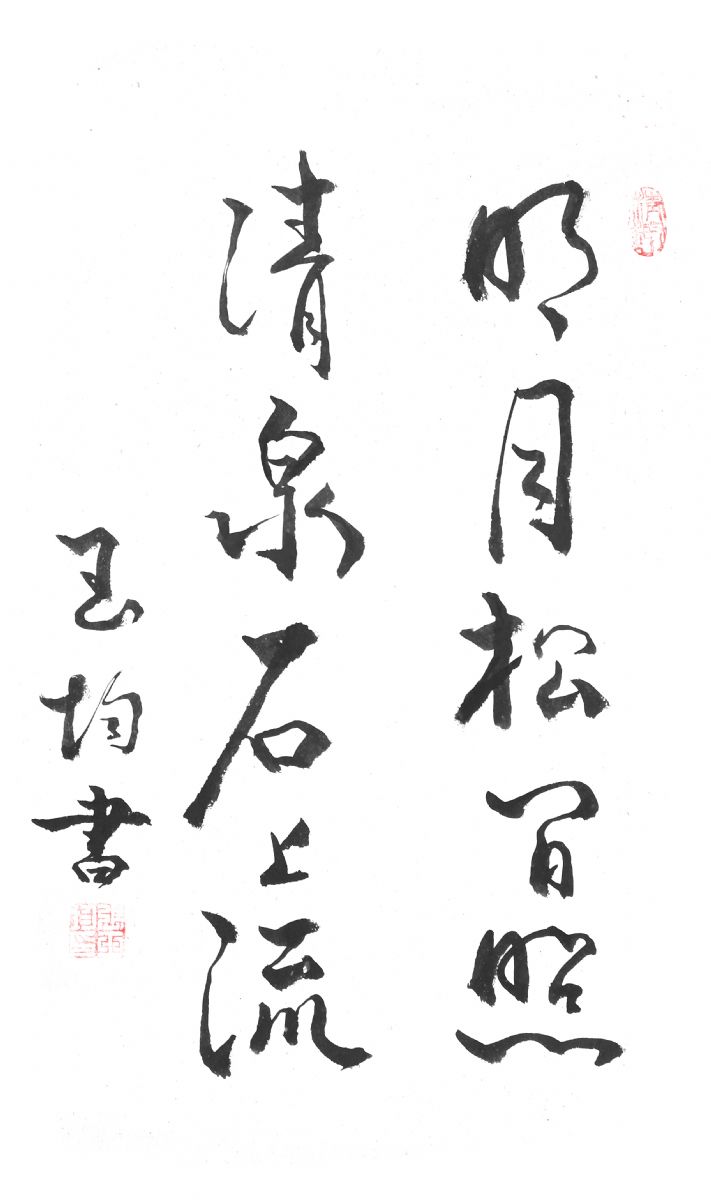 明月松間照
清泉石上流
玉均書